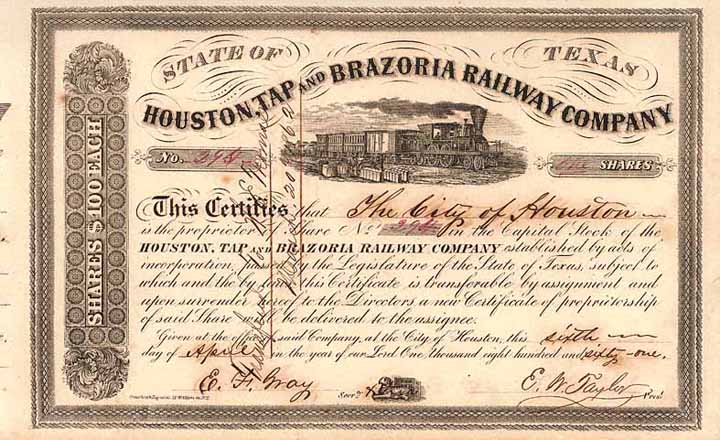 STATE OF TEXAS
HOUSTON, TAP AND BRAZORIA RAILWAY COMPANY
No. 294 SHARES
SHARES $100 EACH
This Certifies that The City of Houston
is the proprietor of Share No. 294 in the Capital Stock of the
HOUSTON, TAP AND BRAZORIA RAILWAY COMPANY established by acts of
incorporation, passed by the Legislature of the State of Texas, subject to
which and the by laws this Certificate is transferable by assignment and
upon surrender hereof to the Directors a new Certificate of proprietorship
of said Share will be delivered to the assignee.
Given at the office of said Company, at the City of Houston, this sixth
day of April in the year of our Lord One thousand eight hundred and sixty-one.
E. F. Gray Secry. E. W. Taylor Presdt.